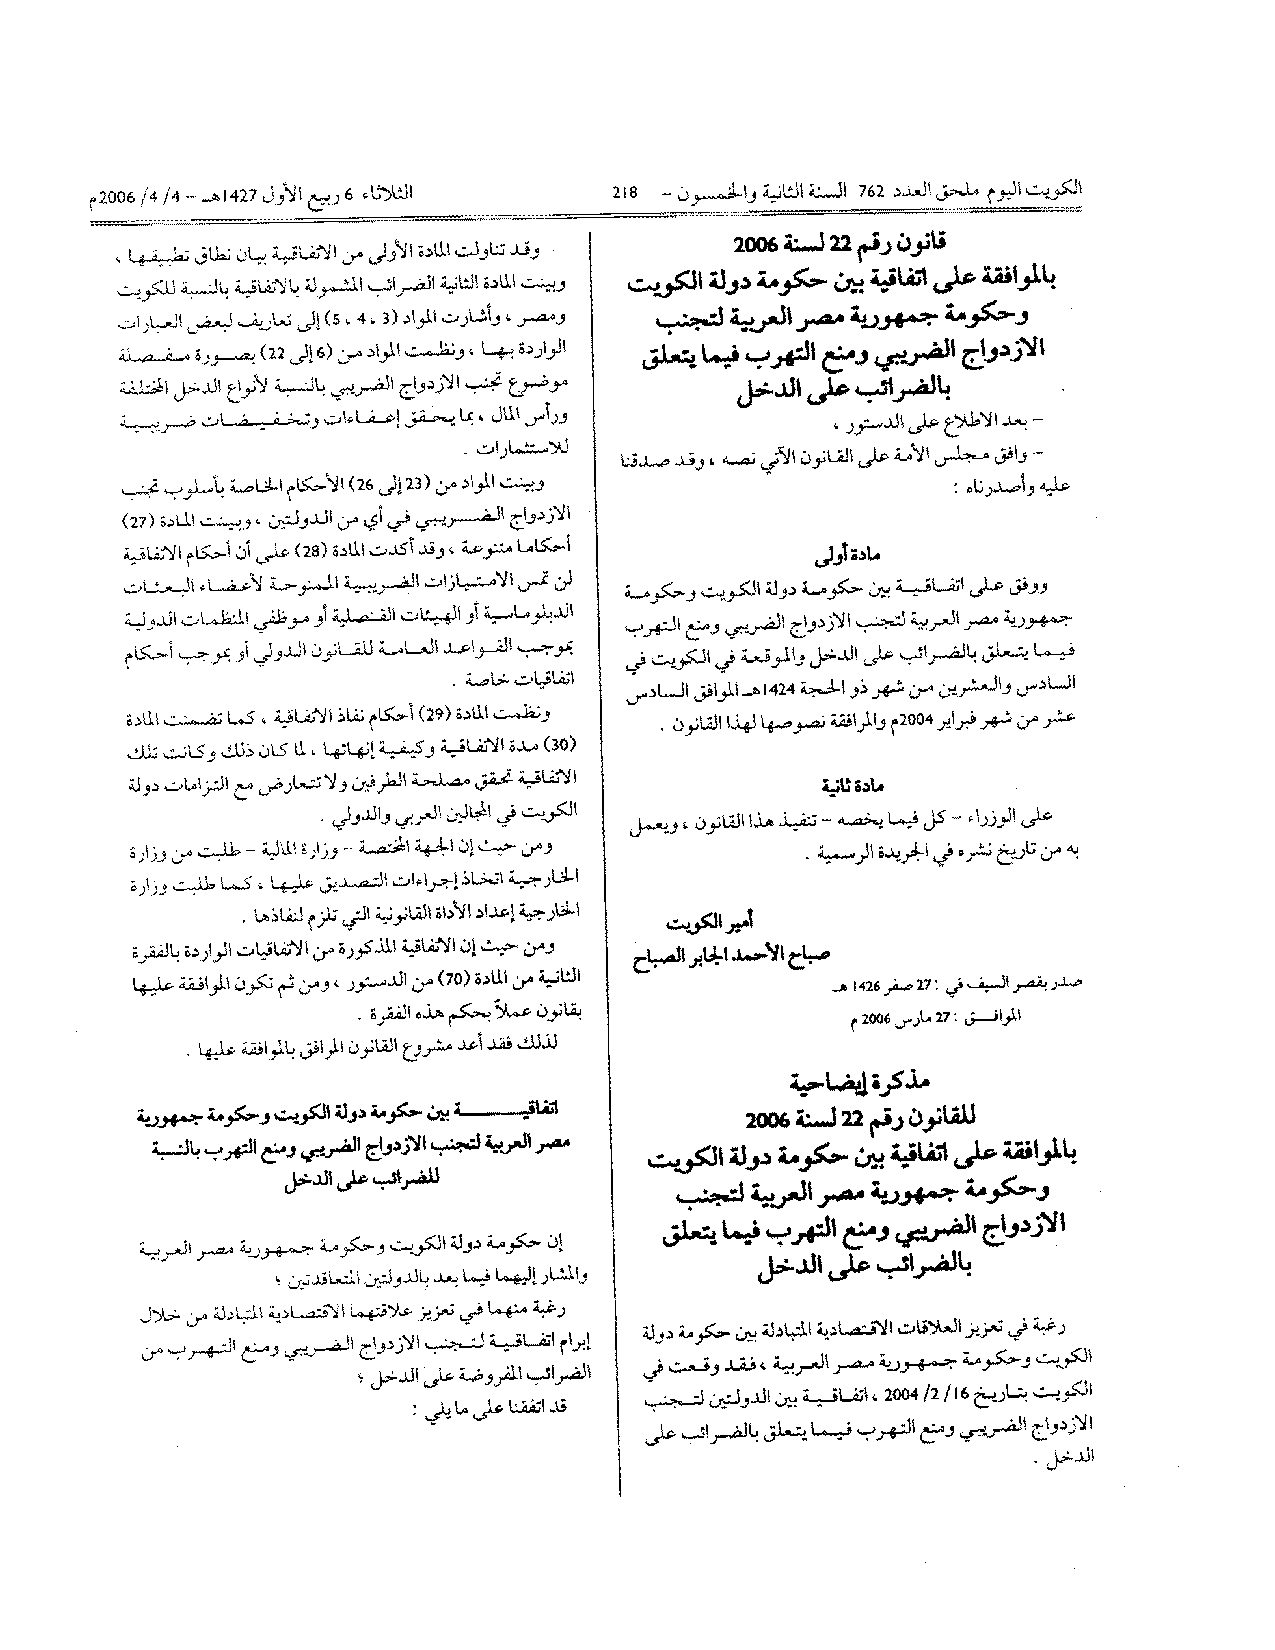 الكويت اليوم ملحق العدد 762 السنة الثانية والخمسون - 218
الثلاثاء 6 ربيع الأول 1427هـ - 4/ 4/ 2006م
قانون رقم 22 لسنة 2006
بالموافقة على اتفاقية بين حكومة دولة الكويت
وحكومة جمهورية مصر العربية لتجنب
الازدواج الضريبي ومنع التهرب فيما يتعلق
بالضرائب على الدخل
- بعد الاطلاع على الدستور ،
- وافق مجلس الأمة على القانون الآتي نصه ، وقد صدقنا
عليه وأصدرناه :
مادة أولى
ووفق على اتفاقية بين حكومة دولة الكويت وحكومة
جمهورية مصر العربية لتجنب الازدواج الضريبي ومنع التهرب
فيما يتعلق بالضرائب على الدخل والموقعة في الكويت في
السادس والعشرين من شهر ذو الحجة 1424هـ الموافق السادس
عشر من شهر فبراير 2004م والمرافقة نصوصها لهذا القانون .
مادة ثانية
على الوزراء - كل فيما يخصه - تنفيذ هذا القانون ، ويعمل
به من تاريخ نشره في الجريدة الرسمية .
أمير الكويت
صباح الأحمد الجابر الصباح
صدر بقصر السيف في : 27 صفر 1426 هـ
الموافـــق : 27 مارس 2006 م
مذكرة إيضاحية
للقانون رقم 22 لسنة 2006
بالموافقة على اتفاقية بين حكومة دولة الكويت
وحكومة جمهورية مصر العربية لتجنب
الازدواج الضريبي ومنع التهرب فيما يتعلق
بالضرائب على الدخل
رغبة في تعزيز العلاقات الاقتصادية المتبادلة بين حكومة دولة
الكويت وحكومة جمهورية مصر العربية ، فقد وقعت في
الكويت بتاريخ 16/ 2/ 2004 ، اتفاقية بين الدولتين لتجنب
الازدواج الضريبي ومنع التهرب فيما يتعلق بالضرائب على
الدخل .
وقد تناولت المادة الأولى من الاتفاقية بيان نطاق تطبيقها ،
وبينت المادة الثانية الضرائب المشمولة بالاتفاقية بالنسبة للكويت
ومصر ، وأشارت المواد (3 ، 4 ، 5) إلى تعاريف لبعض العبارات
الواردة بها ، ونظمت المواد من (6 إلى 22) بصورة مفصلة
موضوع تجنب الازدواج الضريبي بالنسبة لأنواع الدخل المختلفة
ورأس المال ، بما يحقق إعفاءات وتخفيضات ضريبية
للاستثمارات .
وبينت المواد من (23 إلى 26) الأحكام الخاصة بأسلوب تجنب
الازدواج الضريبي في أي من الدولتين ، وبينت المادة (27)
أحكاما متنوعة ، وقد أكدت المادة (28) على أن أحكام الاتفاقية
لن تمس الامتيازات الضريبية الممنوحة لأعضاء البعثات
الدبلوماسية أو الهيئات القنصلية أو موظفي المنظمات الدولية
بموجب القواعد العامة للقانون الدولي أو بموجب أحكام
اتفاقيات خاصة .
ونظمت المادة (29) أحكام نفاذ الاتفاقية ، كما تضمنت المادة
(30) مدة الاتفاقية وكيفية إنهائها ، لما كان ذلك وكانت تلك
الاتفاقية تحقق مصلحة الطرفين ولا تتعارض مع التزامات دولة
الكويت في المجالين العربي والدولي .
ومن حيث إن الجهة المختصة - وزارة المالية - طلبت من وزارة
الخارجية اتخاذ إجراءات التصديق عليها ، كما طلبت وزارة
الخارجية إعداد الأداة القانونية التي تلزم لنفاذها .
ومن حيث إن الاتفاقية المذكورة من الاتفاقيات الواردة بالفقرة
الثانية من المادة (70) من الدستور ، ومن ثم تكون الموافقة عليها
بقانون عملاً بحكم هذه الفقرة .
لذلك فقد أعد مشروع القانون المرافق بالموافقة عليها .
اتفاقيـــــــة بين حكومة دولة الكويت وحكومة جمهورية
مصر العربية لتجنب الازدواج الضريبي ومنع التهرب بالنسبة
للضرائب على الدخل
إن حكومة دولة الكويت وحكومة جمهورية مصر العربية
والمشار إليهما فيما بعد بالدولتين المتعاقدتين ؛
رغبة منهما في تعزيز علاقتهما الاقتصادية المتبادلة من خلال
إبرام اتفاقية لتجنب الازدواج الضريبي ومنع التهرب من
الضرائب المفروضة على الدخل ؛
قد اتفقنا على ما يلي :